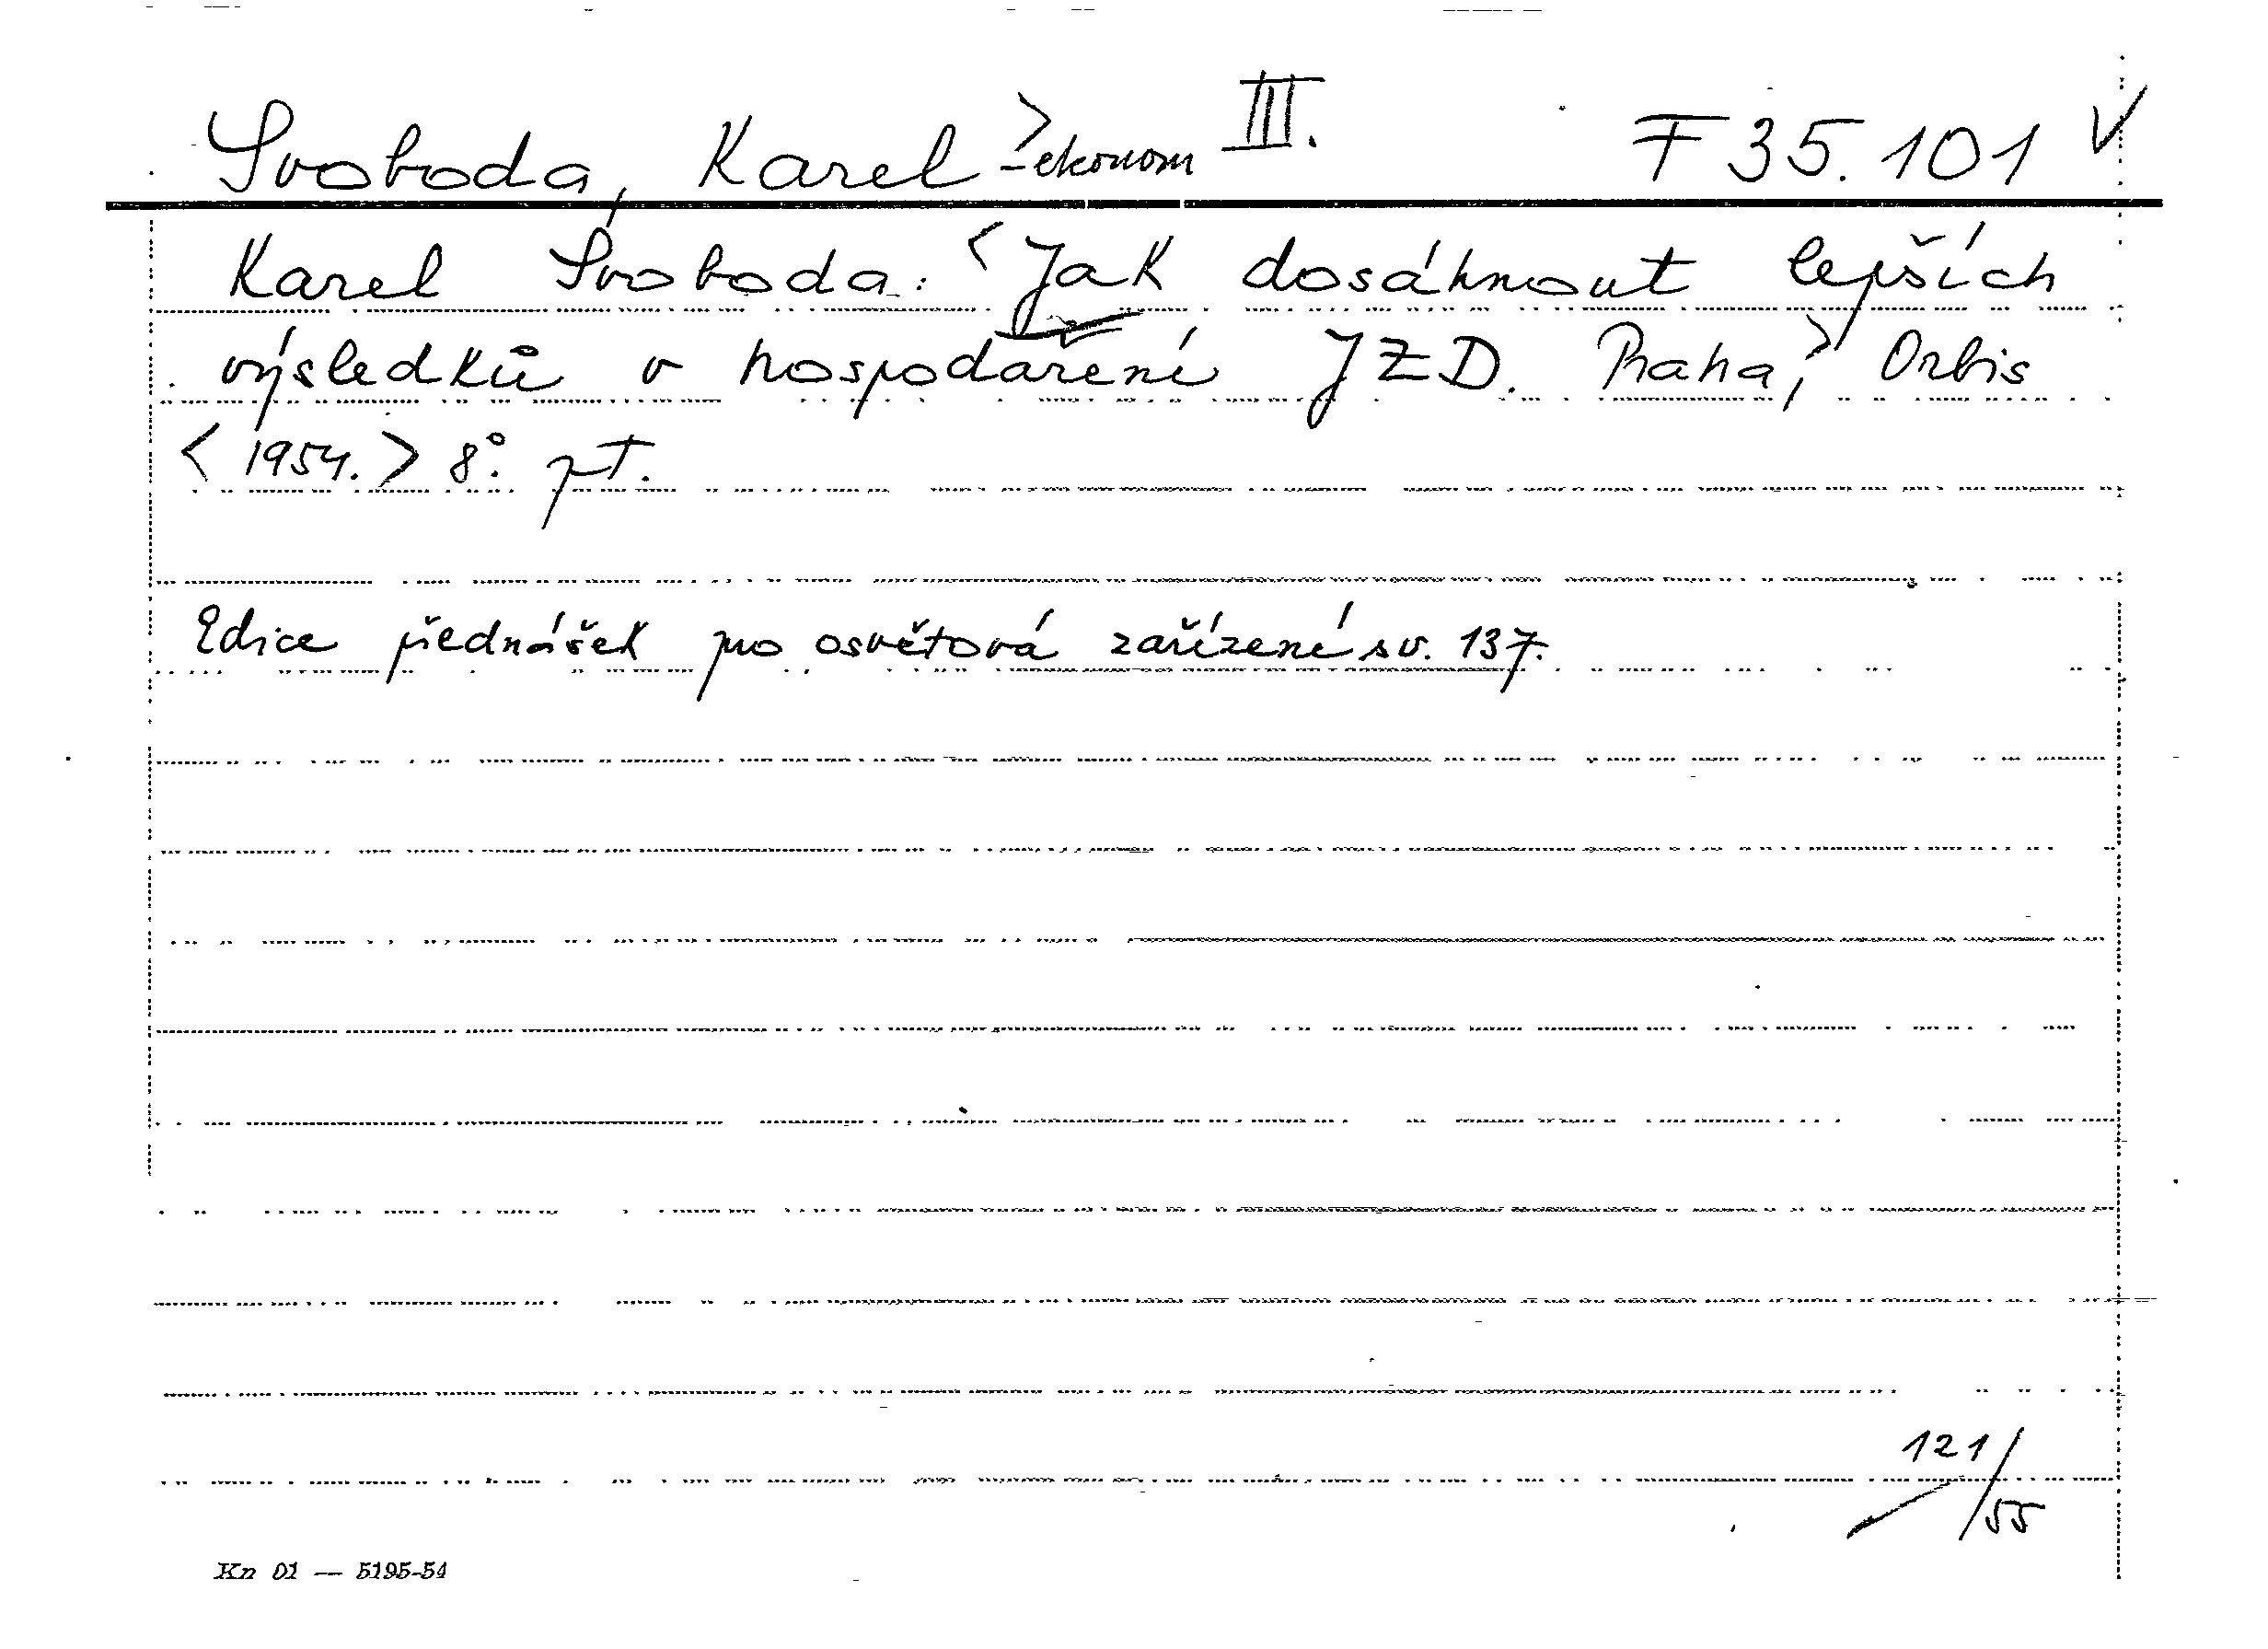 Svoboda, Karel > - ekonom III. F 35.101 V
Karel Svoboda: <Jak dosáhnout lepších
výsledků v hospodaření JZD. Praha,> Orbis
<1954.> 8°. pt.
Edice přednášek pro osvětová zařízení sv. 137.
121/55
Kn 01 — 5195-54